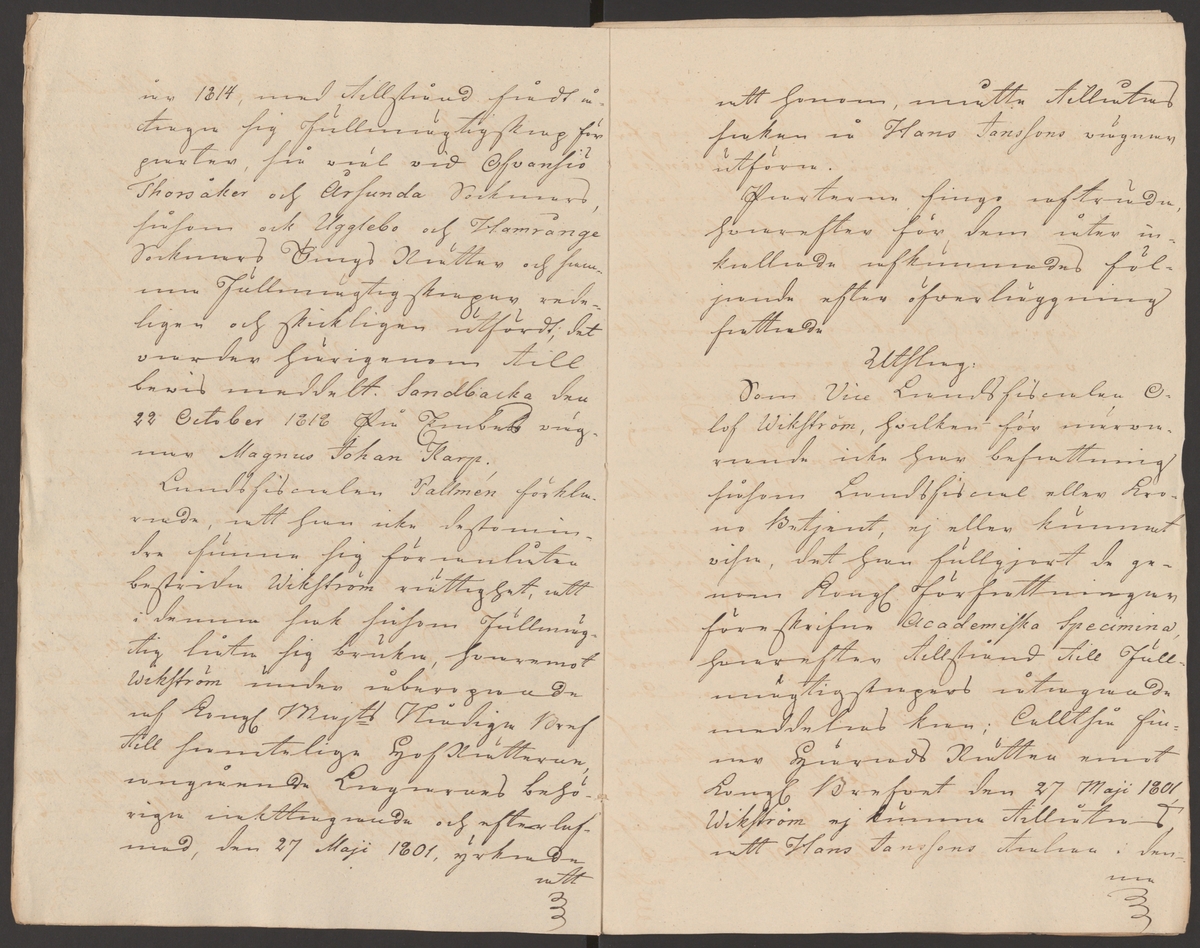 år 1814, med tillstånd findt å-
taga sig Fullmägtigskap för
parter, så väl vid Ofvansjö
Thorsåker och Årsunda Socknars,
såsom ock Ugglebo och Hamrånge
Socknars Tings Rätter och sam-
ma Fullmägtigskaper rede-
ligen och skickligen utfördt, det
warder härigenom till
bevis meddelt. Sandbacka den
22 October 1818 På Embets väg-
nar Magnus Johan Karp.
Landsfiscalen Tallmén förkla-
rade, att han icke destomin-
dre funne sig föranlåten
bestrida Wikström rättighet, att
i denna sak såsom Fullmäg-
tig låta sig bruka, hvaremot
Wikström under åberopande
af Kongl Majts Nådiga Bref
till samtelige HofRätterne,
angående Lagarnes behö-
riga iakttagande och efterlef-
nad, den 27 Maji 1801, yrkade
att
att honom, måtte tillåtas
saken å Hans Janssons vägnar
utföra.
Parterne fingo afträda,
hvarefter för dem åter in-
kallade afkunnades föl-
jande efter öfverläggning
fattade
Utslag:
Som Vice Landsfiscalen O-
lof Wikström, hvilken för närva-
rande icke har befattning
såsom Landsfiscal eller Kro-
no Betjent, ej eller kunnat
visa, det han fullgjort de ge-
nom Kongl Författningar
föreskrifne Academiska Specimina,
hvarefter tillstånd till Full-
mägtigskapers åtagande
meddelas kan; Ty alltså fin-
ner Härads Rätten emot
Kongl Brefvet den 27 Maji 1801
Wikström ej kunna tillåtas
att Hans Janssons talan i den-
na